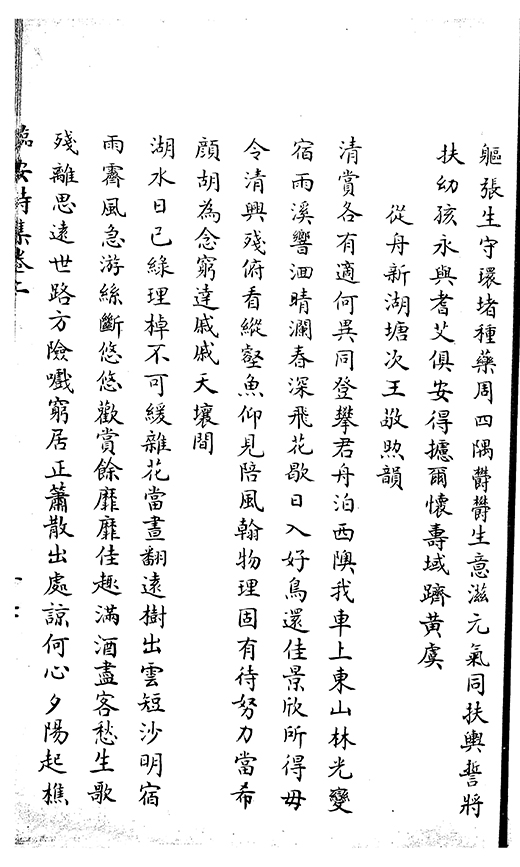 軀張生守環堵種藥周四隅欝欝生意滋元氣同扶輿誓將
扶幼孩永與耆艾俱安得攄爾懷壽域躋黃虞
從舟新湖塘次王敬煦韻
清賞各有適何異同登攀君舟泊西隩我車上東山林光變
宿雨溪響洄晴瀾春深飛花歇日入好鳥還佳景欣所得毋
令清興殘俯看縱壑魚仰見陪風翰物理固有待努力當希
顔胡為念窮達戚戚天壤間
湖水日已綠理棹不可緩雜花當晝翻遠樹出雲短沙明宿
雨霽風急游絲斷悠悠歡賞餘靡靡佳趣滿酒盡客愁生歌
殘離思遠世路方險巇窮居正蕭散出處諒何心夕陽起樵
臨安詩集卷